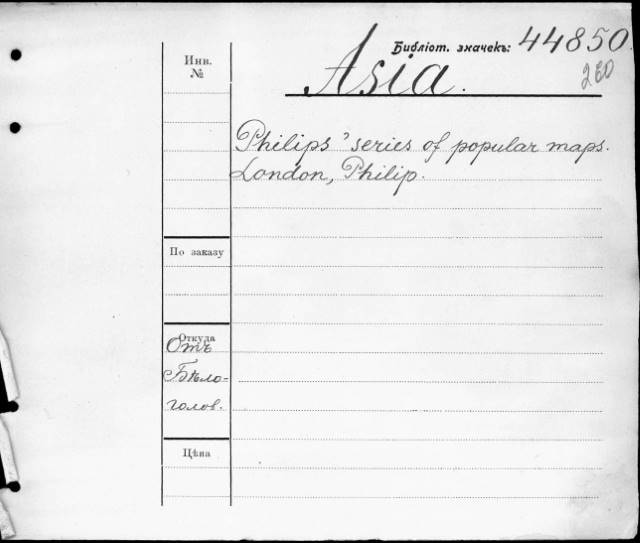 Библіот. значекъ: 44850.
Инв.
№
Asia.
Philips' series of popular maps.
London, Philip.
По заказу
Откуда
Отъ
Бѣло-
голов.
Цѣна